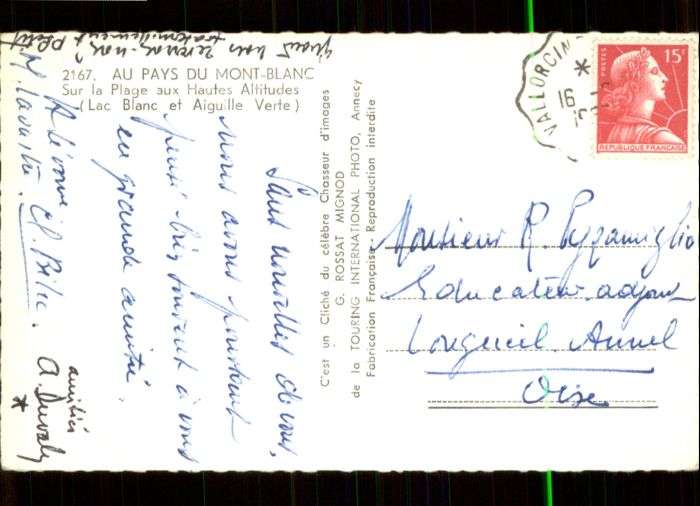 2167. AU PAYS DU MONT-BLANC
Sur la Plage aux Hautes Altitudes
(Lac Blanc et Aiguille Verte)
Sans nouvelles de vous,
nous avons pourtant
pensé très souvent à vous
en grande amitié.
amitiés
*
Quand vous reverrons-nous?
fraternellement
C'est un Cliché du célèbre Chasseur d'images
G. ROSSAT MIGNOD
de la TOURING INTERNATIONAL PHOTO, Annecy
Fabrication Française Reproduction interdite
VALLORCIN
*
16
POSTES
15F
REPUBLIQUE FRANÇAISE
Monsieur R. Pezzamiglio
Educateur adjoint
Longueil Annel
Oise